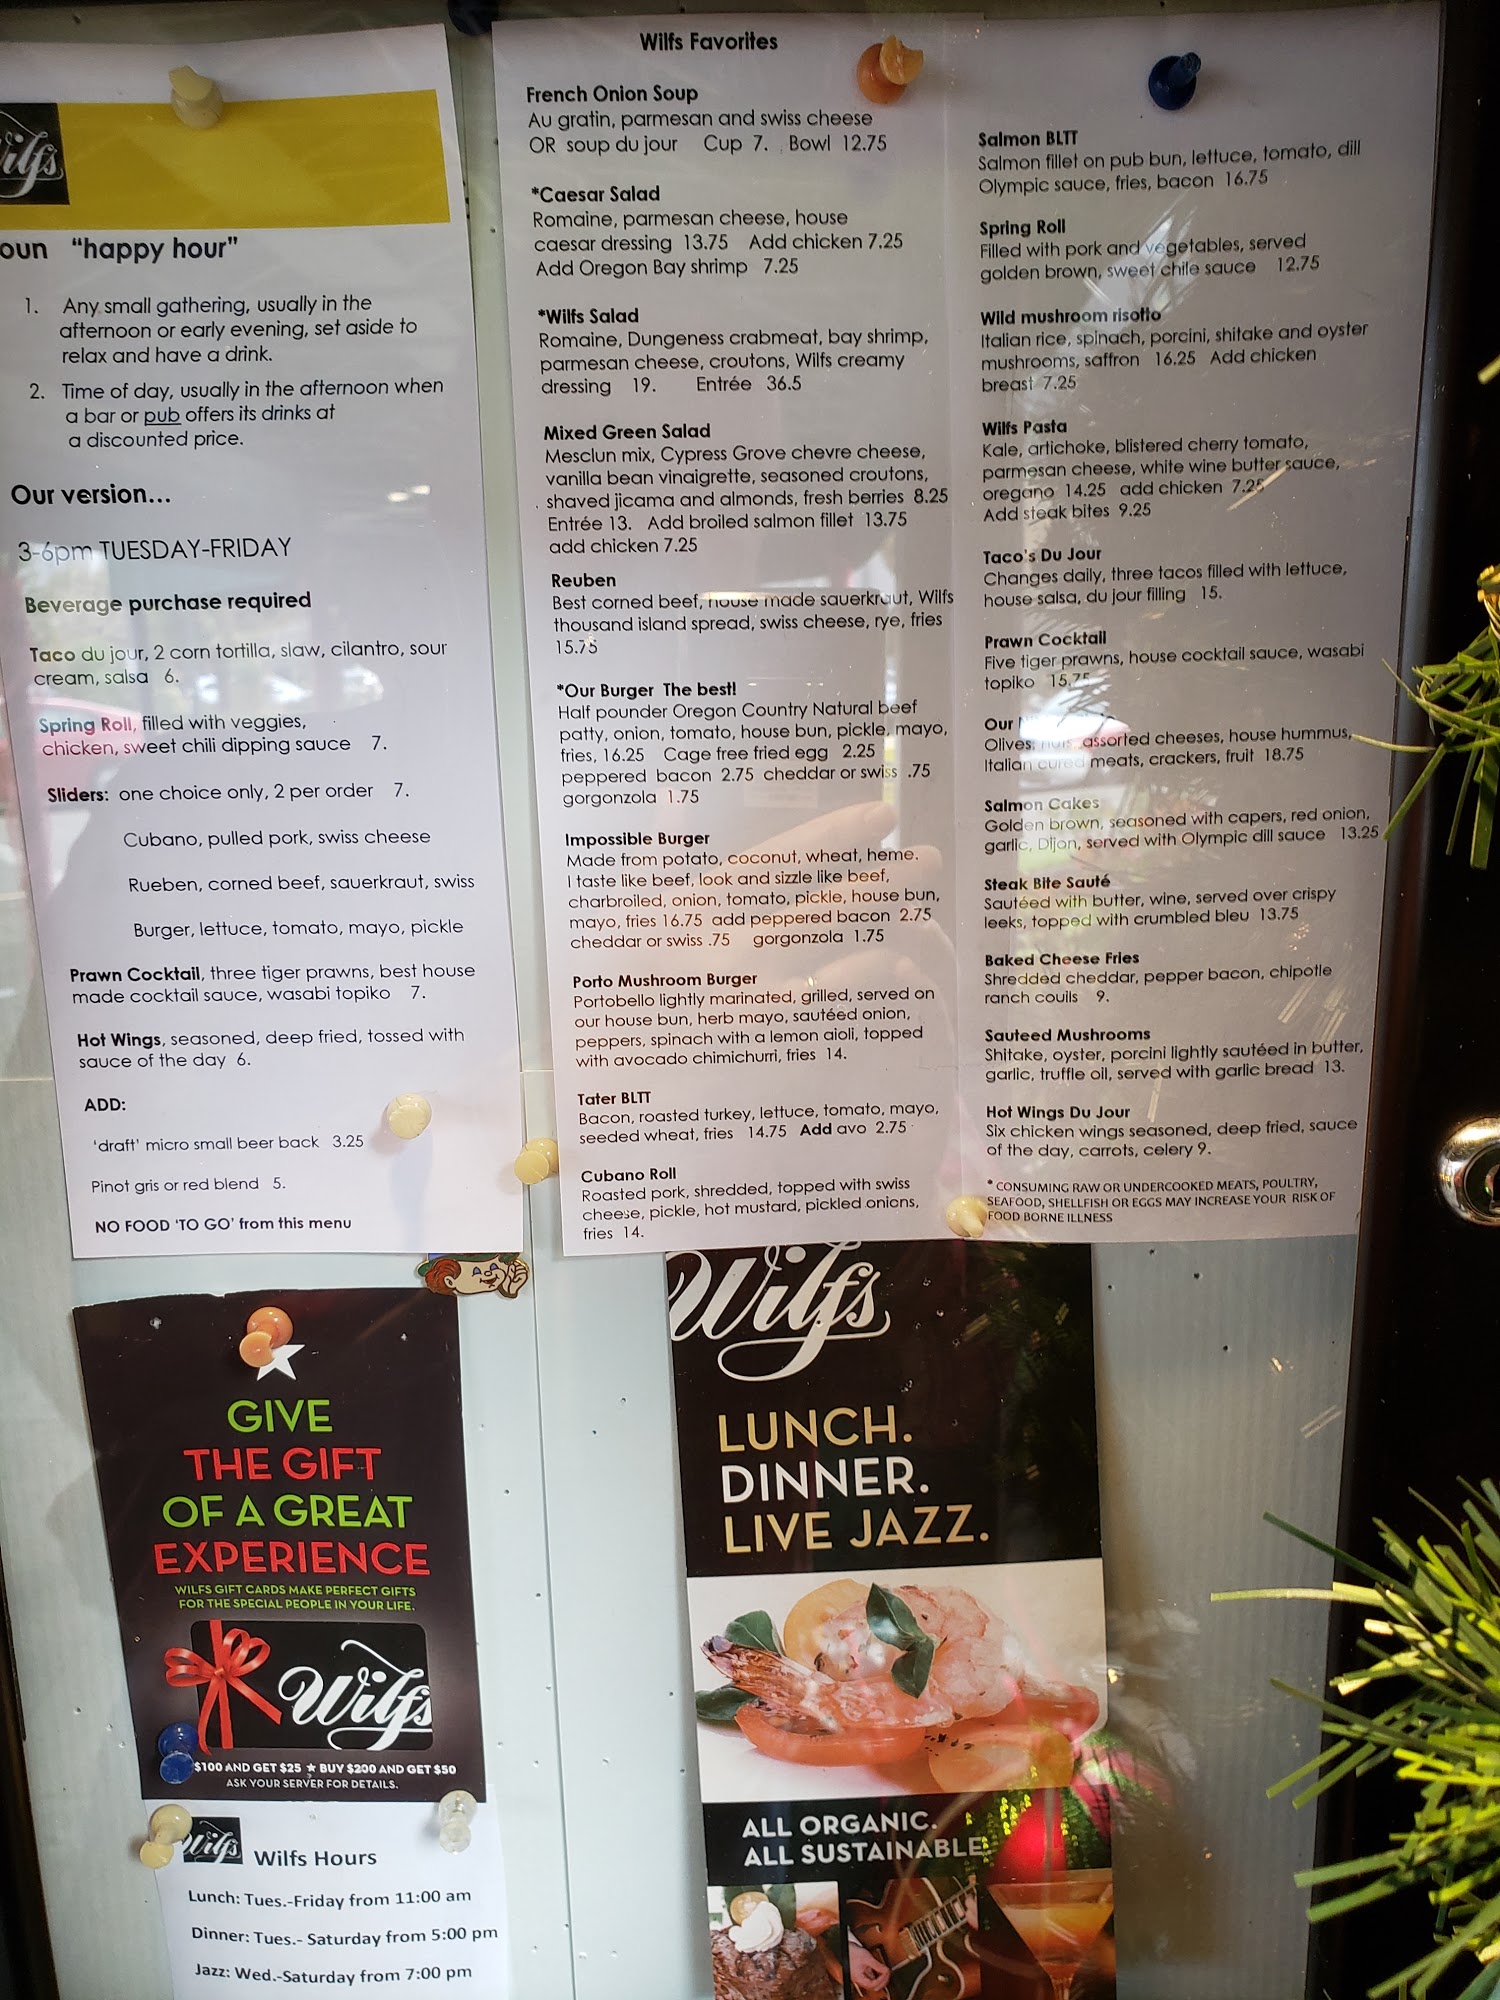 Wilfs
oun "happy hour"
1. Any small gathering, usually in the
afternoon or early evening, set aside to
relax and have a drink.
2. Time of day, usually in the afternoon when
a bar or pub offers its drinks at
a discounted price.
Our version...
3-6pm TUESDAY-FRIDAY
Beverage purchase required
Taco du jour, 2 corn tortilla, slaw, cilantro, sour
cream, salsa 6.
Spring Roll, filled with veggies,
chicken, sweet chili dipping sauce 7.
Sliders: one choice only, 2 per order 7.
Cubano, pulled pork, swiss cheese
Rueben, corned beef, sauerkraut, swiss
Burger, lettuce, tomato, mayo, pickle
Prawn Cocktail, three tiger prawns, best house
made cocktail sauce, wasabi topiko 7.
Hot Wings, seasoned, deep fried, tossed with
sauce of the day 6.
ADD:
'draft' micro small beer back 3.25
Pinot gris or red blend 5.
NO FOOD 'TO GO' from this menu
Wilfs Favorites
French Onion Soup
Au gratin, parmesan and swiss cheese
OR soup du jour Cup 7. Bowl 12.75
*Caesar Salad
Romaine, parmesan cheese, house
caesar dressing 13.75 Add chicken 7.25
Add Oregon Bay shrimp 7.25
*Wilfs Salad
Romaine, Dungeness crabmeat, bay shrimp,
parmesan cheese, croutons, Wilfs creamy
dressing 19. Entrée 36.5
Mixed Green Salad
Mesclun mix, Cypress Grove chevre cheese,
vanilla bean vinaigrette, seasoned croutons,
shaved jicama and almonds, fresh berries 8.25
Entrée 13. Add broiled salmon fillet 13.75
add chicken 7.25
Reuben
Best corned beef, house made sauerkraut, Wilfs
thousand island spread, swiss cheese, rye, fries
15.75
*Our Burger The best!
Half pounder Oregon Country Natural beef
patty, onion, tomato, house bun, pickle, mayo,
fries, 16.25 Cage free fried egg 2.25
peppered bacon 2.75 cheddar or swiss .75
gorgonzola 1.75
Impossible Burger
Made from potato, coconut, wheat, heme.
I taste like beef, look and sizzle like beef,
charbroiled, onion, tomato, pickle, house bun,
mayo, fries 16.75 add peppered bacon 2.75
cheddar or swiss .75 gorgonzola 1.75
Porto Mushroom Burger
Portobello lightly marinated, grilled, served on
our house bun, herb mayo, sautéed onion,
peppers, spinach with a lemon aioli, topped
with avocado chimichurri, fries 14.
Tater BLTT
Bacon, roasted turkey, lettuce, tomato, mayo,
seeded wheat, fries 14.75 Add avo 2.75
Cubano Roll
Roasted pork, shredded, topped with swiss
cheese, pickle, hot mustard, pickled onions,
fries 14.
Salmon BLTT
Salmon fillet on pub bun, lettuce, tomato, dill
Olympic sauce, fries, bacon 16.75
Spring Roll
Filled with pork and vegetables, served
golden brown, sweet chile sauce 12.75
Wild mushroom risotto
Italian rice, spinach, porcini, shitake and oyster
mushrooms, saffron 16.25 Add chicken
breast 7.25
Wilfs Pasta
Kale, artichoke, blistered cherry tomato,
parmesan cheese, white wine butter sauce,
oregano 14.25 add chicken 7.25
Add steak bites 9.25
Taco's Du Jour
Changes daily, three tacos filled with lettuce,
house salsa, du jour filling 15.
Prawn Cocktail
Five tiger prawns, house cocktail sauce, wasabi
topiko 15.75
Our
Olives, nuts, assorted cheeses, house hummus,
Italian cured meats, crackers, fruit 18.75
Salmon Cakes
Golden brown, seasoned with capers, red onion,
garlic, Dijon, served with Olympic dill sauce 13.25
Steak Bite Sauté
Sautéed with butter, wine, served over crispy
leeks, topped with crumbled bleu 13.75
Baked Cheese Fries
Shredded cheddar, pepper bacon, chipotle
ranch couils 9.
Sauteed Mushrooms
Shitake, oyster, porcini lightly sautéed in butter,
garlic, truffle oil, served with garlic bread 13.
Hot Wings Du Jour
Six chicken wings seasoned, deep fried, sauce
of the day, carrots, celery 9.
* CONSUMING RAW OR UNDERCOOKED MEATS, POULTRY,
SEAFOOD, SHELLFISH OR EGGS MAY INCREASE YOUR RISK OF
FOOD BORNE ILLNESS
GIVE
THE GIFT
OF A GREAT
EXPERIENCE
WILFS GIFT CARDS MAKE PERFECT GIFTS
FOR THE SPECIAL PEOPLE IN YOUR LIFE.
Wilfs
$100 AND GET $25 ★ BUY $200 AND GET $50
ASK YOUR SERVER FOR DETAILS.
Wilfs
Wilfs Hours
Lunch: Tues.-Friday from 11:00 am
Dinner: Tues.- Saturday from 5:00 pm
Jazz: Wed.-Saturday from 7:00 pm
Wilfs
LUNCH.
DINNER.
LIVE JAZZ.
ALL ORGANIC.
ALL SUSTAINABLE